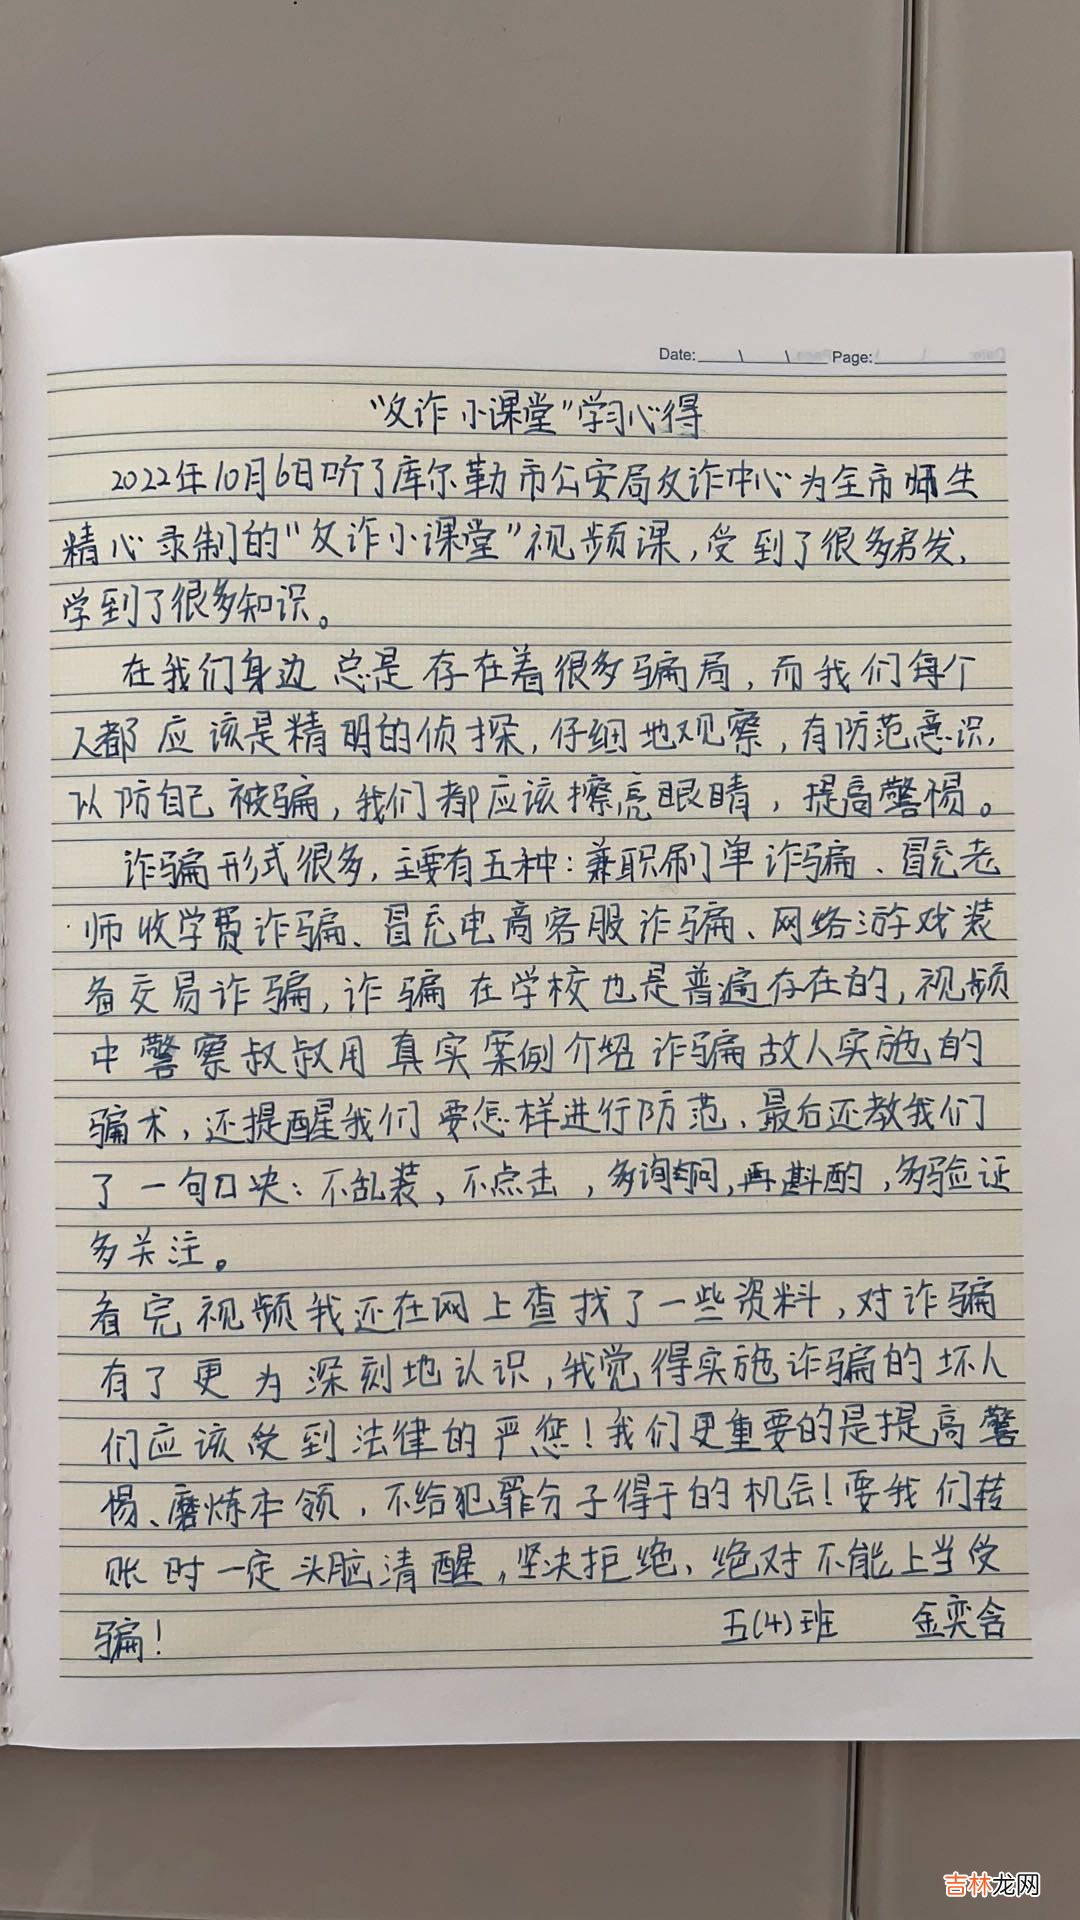 Date: \ \ Page:
“反诈小课堂”学习心得
2022年10月6日听了库尔勒市公安局反诈中心为全市师生
精心录制的“反诈小课堂”视频课,受到了很多启发,
学到了很多知识。
在我们身边总是存在着很多骗局,而我们每个
人都应该是精明的侦探,仔细地观察,有防范意识,
以防自己被骗,我们都应该擦亮眼睛,提高警惕。
诈骗形式很多,主要有五种:兼职刷单诈骗、冒充老
师收学费诈骗、冒充电商客服诈骗、网络游戏装
备交易诈骗,诈骗在学校也是普遍存在的,视频
中警察叔叔用真实案例介绍诈骗故人实施的
骗术,还提醒我们要怎样进行防范、最后还教我们
了一句口决:不乱装、不点击,多询问,再斟酌,多验证
多关注。
看完视频我还在网上查找了一些资料,对诈骗
有了更为深刻地认识,我觉得实施诈骗的坏人
们应该受到法律的严惩!我们更重要的是提高警
惕、磨炼本领,不给犯罪分子得于的机会!要我们转
账时一定头脑清醒,坚决拒绝、绝对不能上当受
骗! 五(4)班 金奕含
吉林龙网